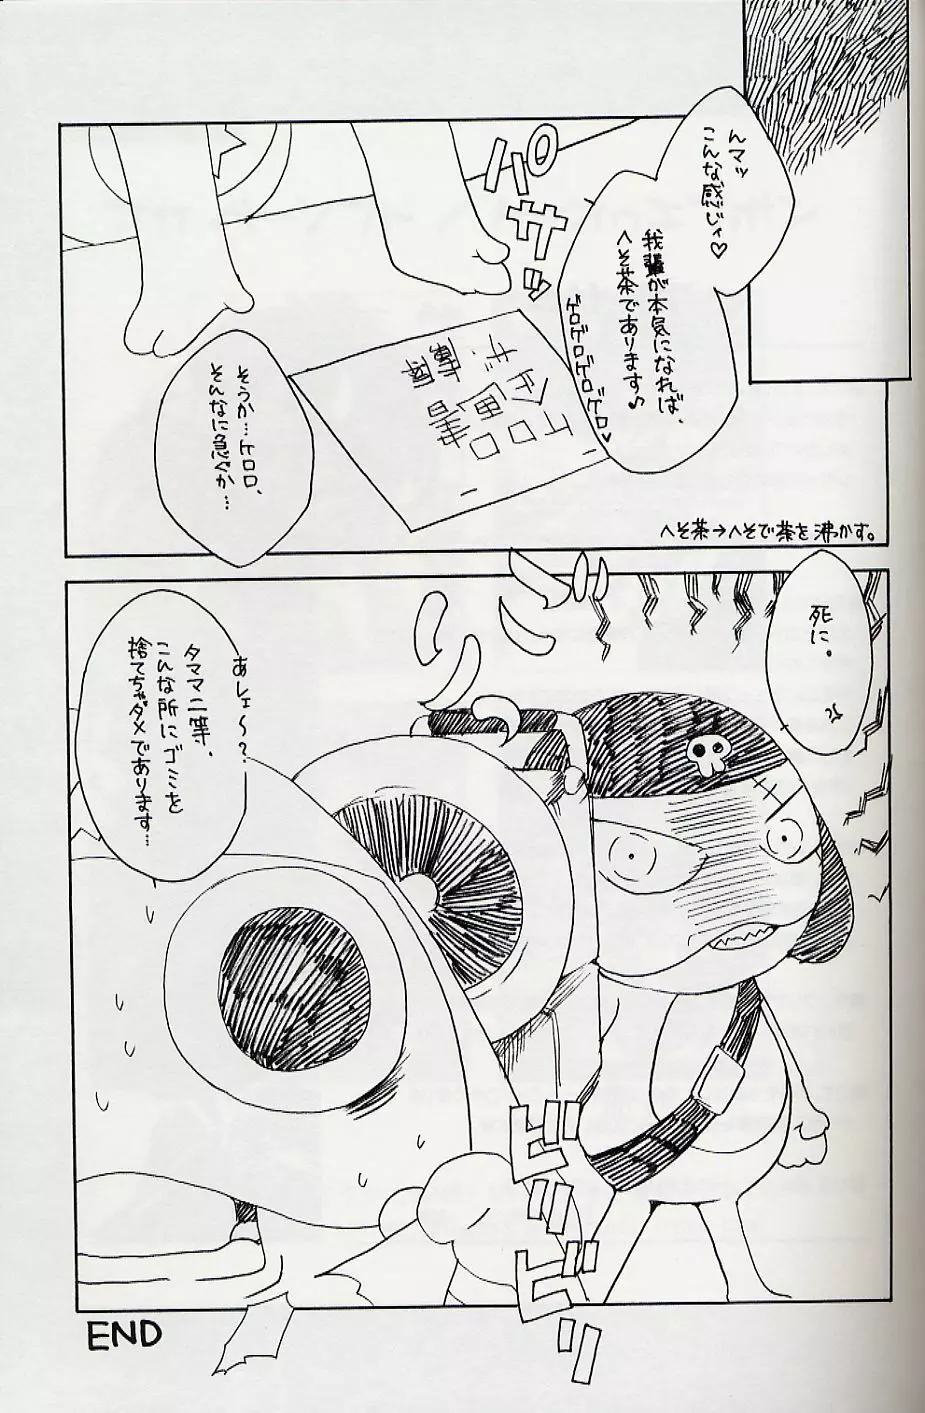 んマッ
こんな感じィ♡
我輩が本気になれば、
へそ茶であります♪
ゲロゲロゲロゲロゲロ♥
パサッ
そうか…ケロロ、
そんなに急ぐか…
へそ茶→へそで茶を沸かす。
死に。
ズリッ
あレェ～?
タママ二等、
こんな所にゴミを
捨てちゃダメであります…
ビリビリッ
END